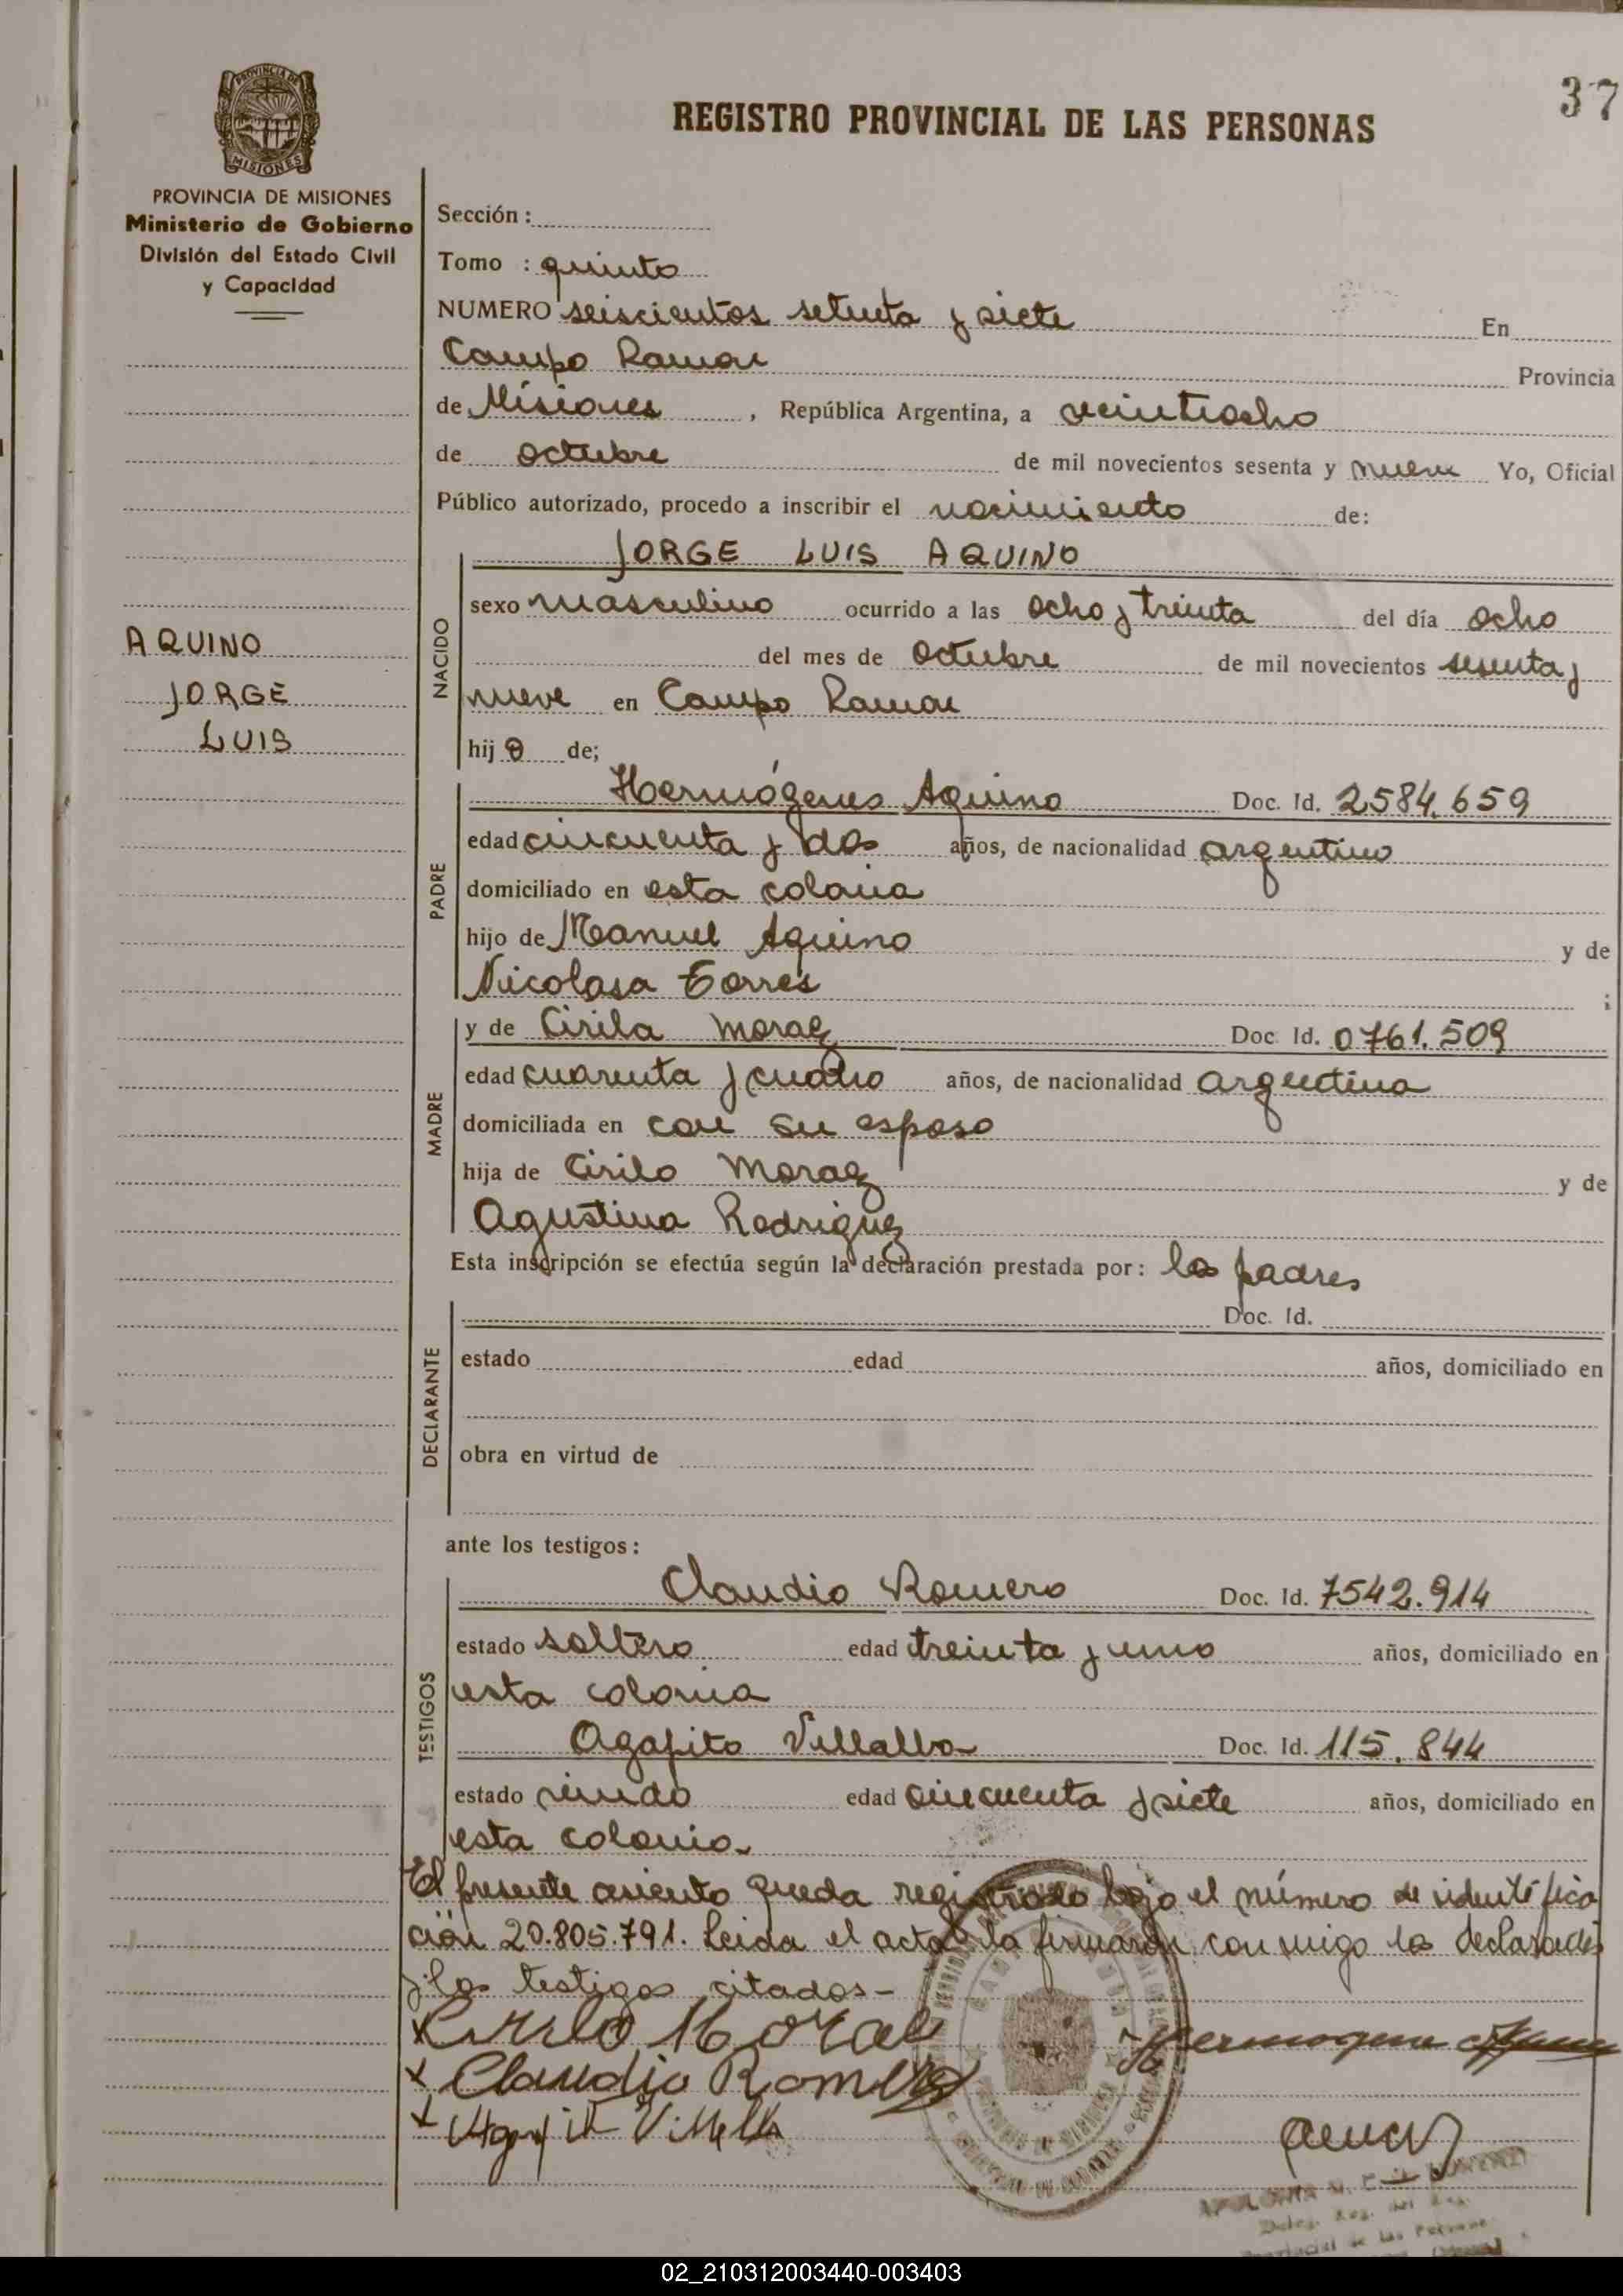 37
REGISTRO PROVINCIAL DE LAS PERSONAS
PROVINCIA DE
MISIONES
PROVINCIA DE MISIONES
Ministerio de Gobierno
División del Estado Civil
y Capacidad
AQUINO
JORGE
LUIS
Sección :
Tomo : quinto
NUMERO seiscientos setenta y siete En
Campo Ramon Provincia
de Misiones , República Argentina, a veintiocho
de octubre de mil novecientos sesenta y nueve Yo, Oficial
Público autorizado, procedo a inscribir el nacimiento de:
NACIDO
JORGE LUIS AQUINO
sexo masculino ocurrido a las ocho y treinta del día ocho
del mes de octubre de mil novecientos sesenta y
nueve en Campo Ramon
hij o de;
PADRE
Hermógenes Aquino Doc. Id. 2584.659
edad cincuenta y dos años, de nacionalidad argentino
domiciliado en esta colonia
hijo de Manuel Aquino y de
Nicolasa Torres ;
MADRE
y de Cirila Moraez Doc. Id. 0761.509
edad cuarenta y cuatro años, de nacionalidad argentina
domiciliada en con su esposo
hija de Cirilo Moraez y de
Agustina Rodriguez
Esta inscripción se efectúa según la declaración prestada por: los padres
DECLARANTE
Doc. Id.
estado edad años, domiciliado en
obra en virtud de
ante los testigos:
TESTIGOS
Claudio Romero Doc. Id. 7542.914
estado soltero edad treinta y uno años, domiciliado en
esta colonia
Agapito Villalba Doc. Id. 115.844
estado viudo edad cincuenta y siete años, domiciliado en
esta colonia.
El presente asiento queda registrado bajo el número de identifica
ción 20.805.791. Leida el acta la firmaron conmigo los declarantes
y los testigos citados-
x
x Claudio Romero
x
02_210312003440-003403